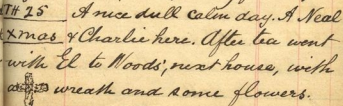 TH 25 A nice dull calm day. A Neal
Xmas & Charlie here. After tea went
with El to Woods', next house, with
wreath and some flowers.